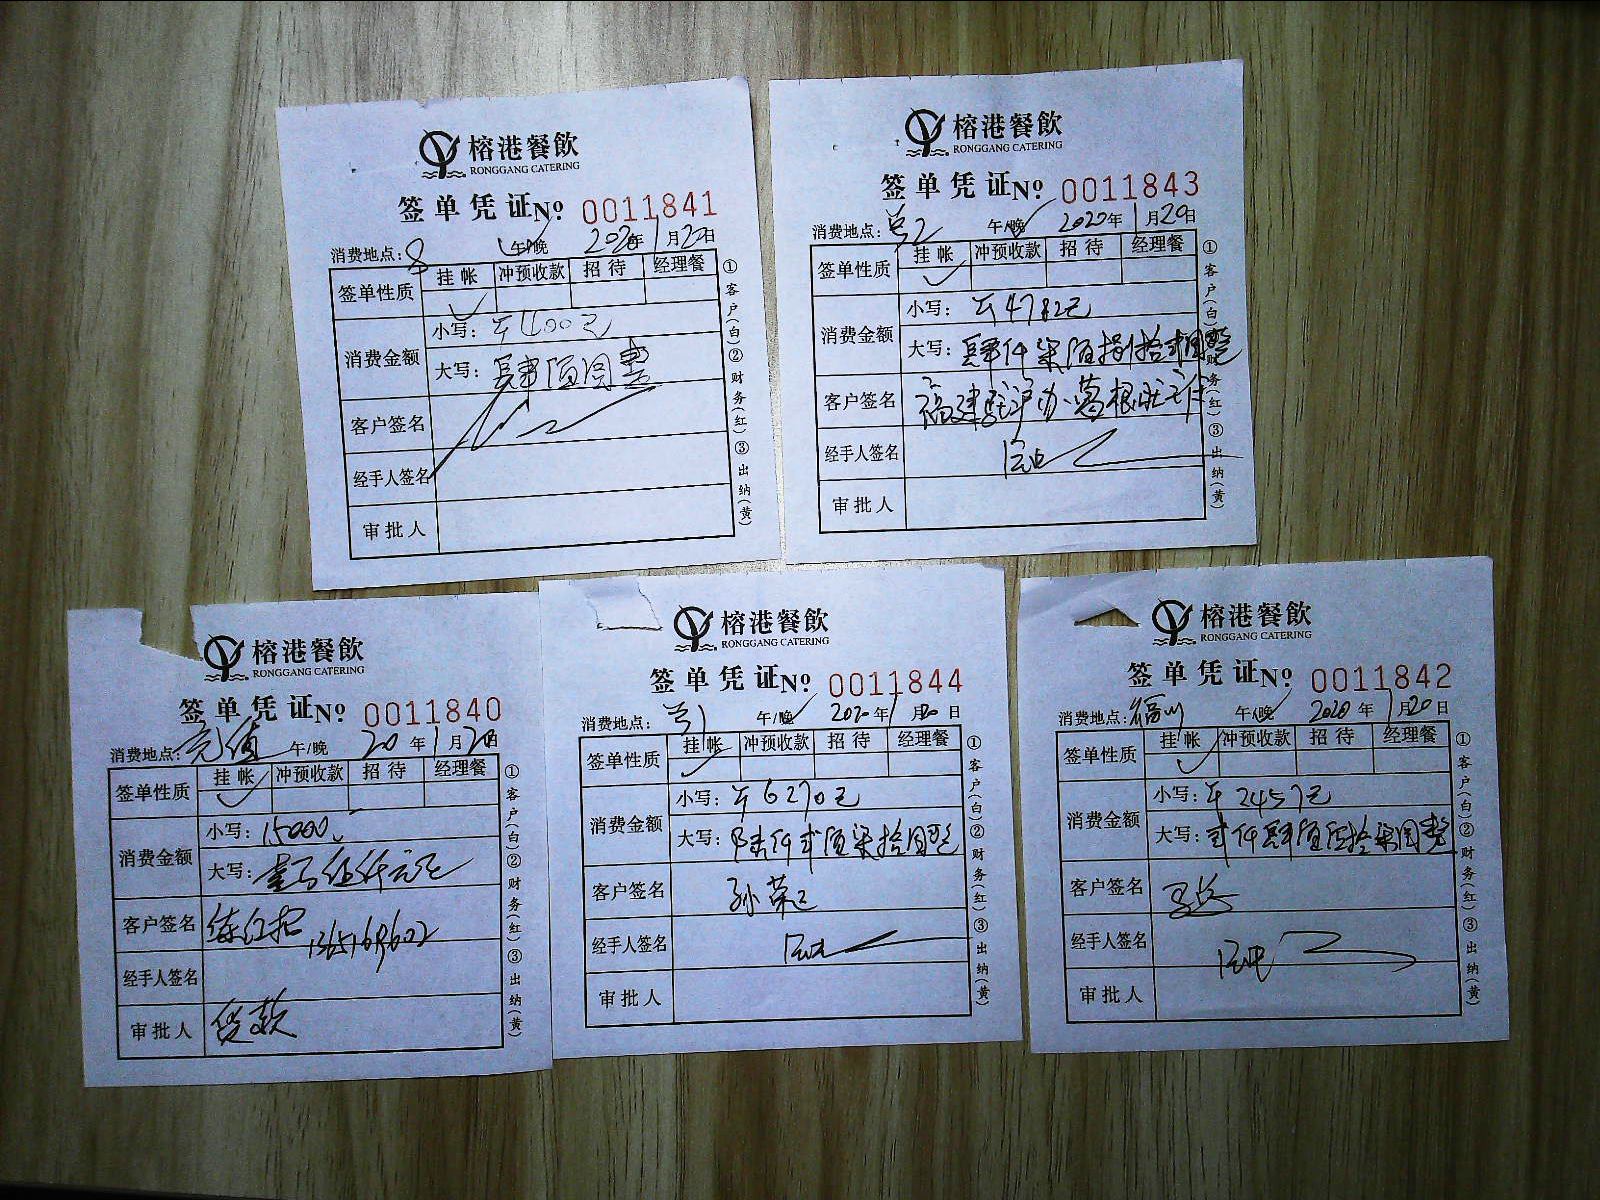 榕港餐飲
RONGGANG CATERING
签单凭证No 0011841
消费地点：8 午/晚 2020年1月20日
签单性质 挂帐 冲预收款 招待 经理餐
消费金额
小写：￥400元
大写：肆佰圆整
客户签名
经手人签名
审批人
①客户(白)②财务(红)③出纳(黄)
榕港餐飲
RONGGANG CATERING
签单凭证No 0011843
消费地点：兰2 午/晚 2020年1月20日
签单性质 挂帐 冲预收款 招待 经理餐
消费金额
小写：￥4782元
大写：肆仟柒佰捌拾贰圆整
客户签名 福建驻沪办
经手人签名
审批人
①客户(白)②财务(红)③出纳(黄)
榕港餐飲
RONGGANG CATERING
签单凭证No 0011840
消费地点：充值 午/晚 20年1月20日
签单性质 挂帐 冲预收款 招待 经理餐
消费金额
小写：15000
大写：壹万伍仟元正
客户签名
经手人签名
审批人 货款
①客户(白)②财务(红)③出纳(黄)
榕港餐飲
RONGGANG CATERING
签单凭证No 0011844
消费地点：兰1 午/晚 2020年1月20日
签单性质 挂帐 冲预收款 招待 经理餐
消费金额
小写：￥6270元
大写：陆仟贰佰柒拾圆整
客户签名
经手人签名
审批人
①客户(白)②财务(红)③出纳(黄)
榕港餐飲
RONGGANG CATERING
签单凭证No 0011842
消费地点：福州 午/晚 2020年1月20日
签单性质 挂帐 冲预收款 招待 经理餐
消费金额
小写：￥2457元
大写：贰仟肆佰伍拾柒圆整
客户签名
经手人签名
审批人
①客户(白)②财务(红)③出纳(黄)